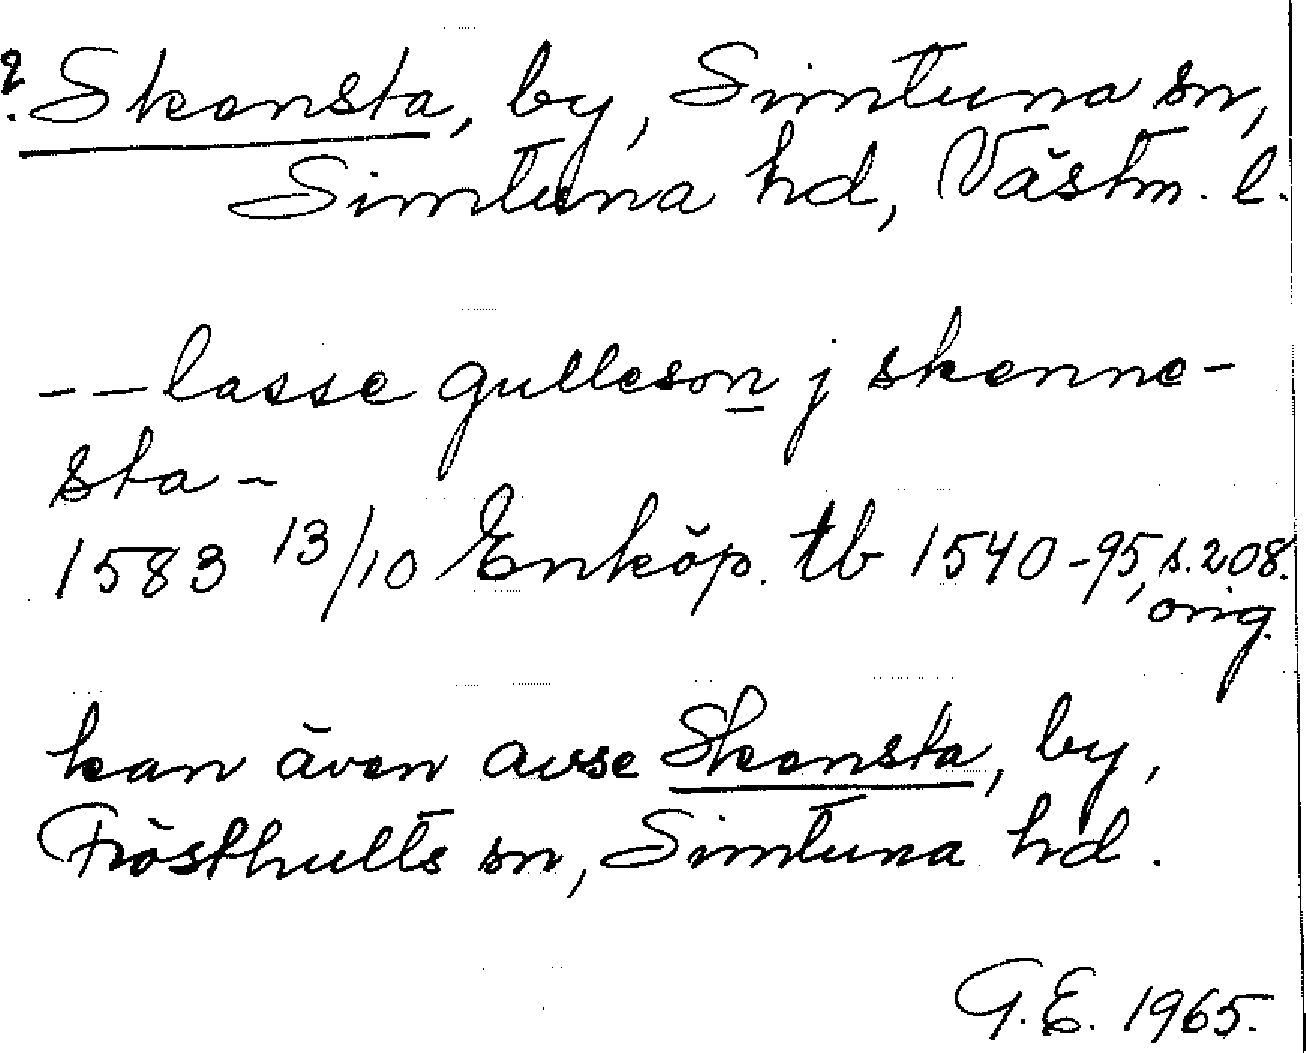 ? Skensta, by, Simtuna sn,
Simtuna hd, Västm. l.
-- lasse gulleson j skenne-
sta -
1583 13/10 Enköp. tb 1540-95, s. 208.
orig.
kan även avse Skensta, by,
Frösthults sn, Simtuna hd.
G.E. 1965.